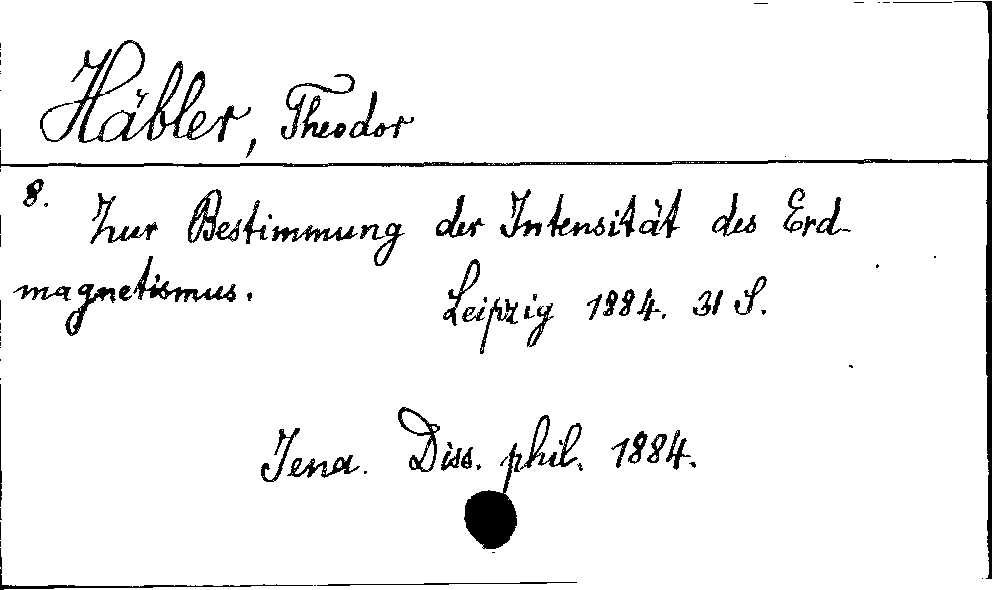 Häbler, Theodor
8.
Zur Bestimmung der Intensität des Erd-
magnetismus.
Leipzig 1884. 31 S.
Jena. Diss. phil. 1884.